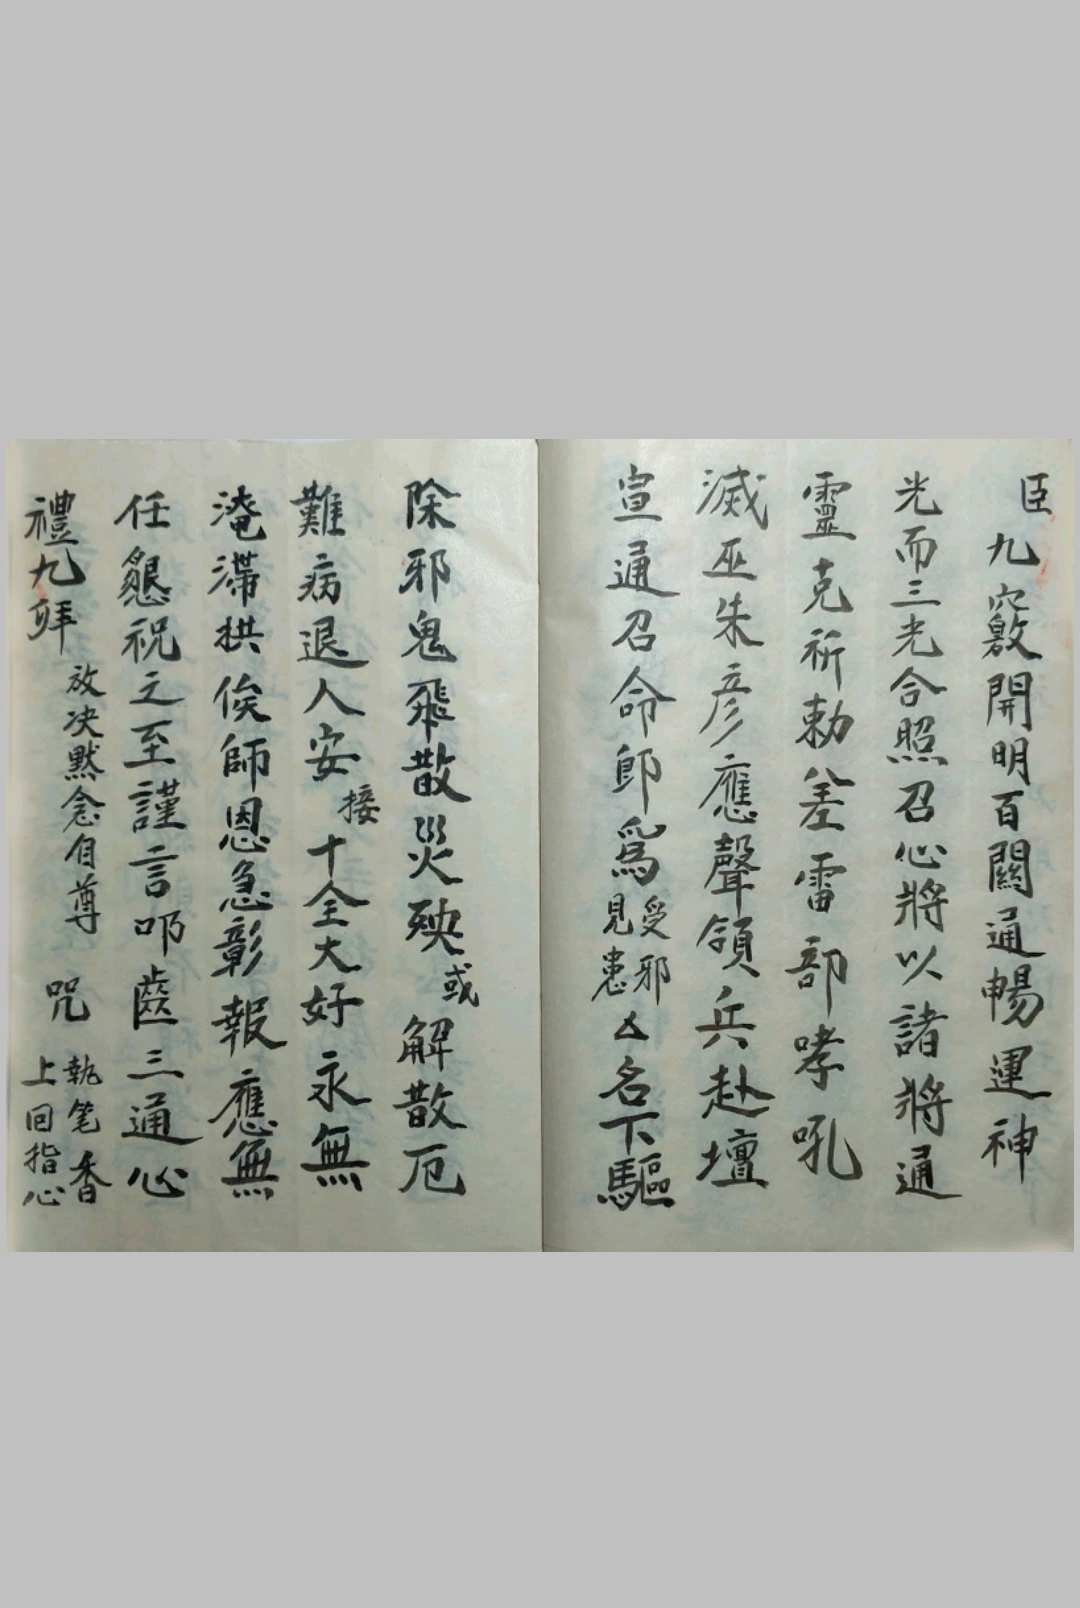 臣九竅開明百關通暢運神
光而三光合照召心將以諸將通
靈克祈勅差雷部哮吼
滅巫朱彥應聲領兵赴壇
宣通召命即爲受邪見患厶名下驅
除邪鬼飛散災殃或解散厄
難病退人安接十全大好永無
淹滯拱俟師恩急彰報應無
任懇祝之至謹言叩齒三通心
禮九拜放决默念自尊咒執笔香上回指心